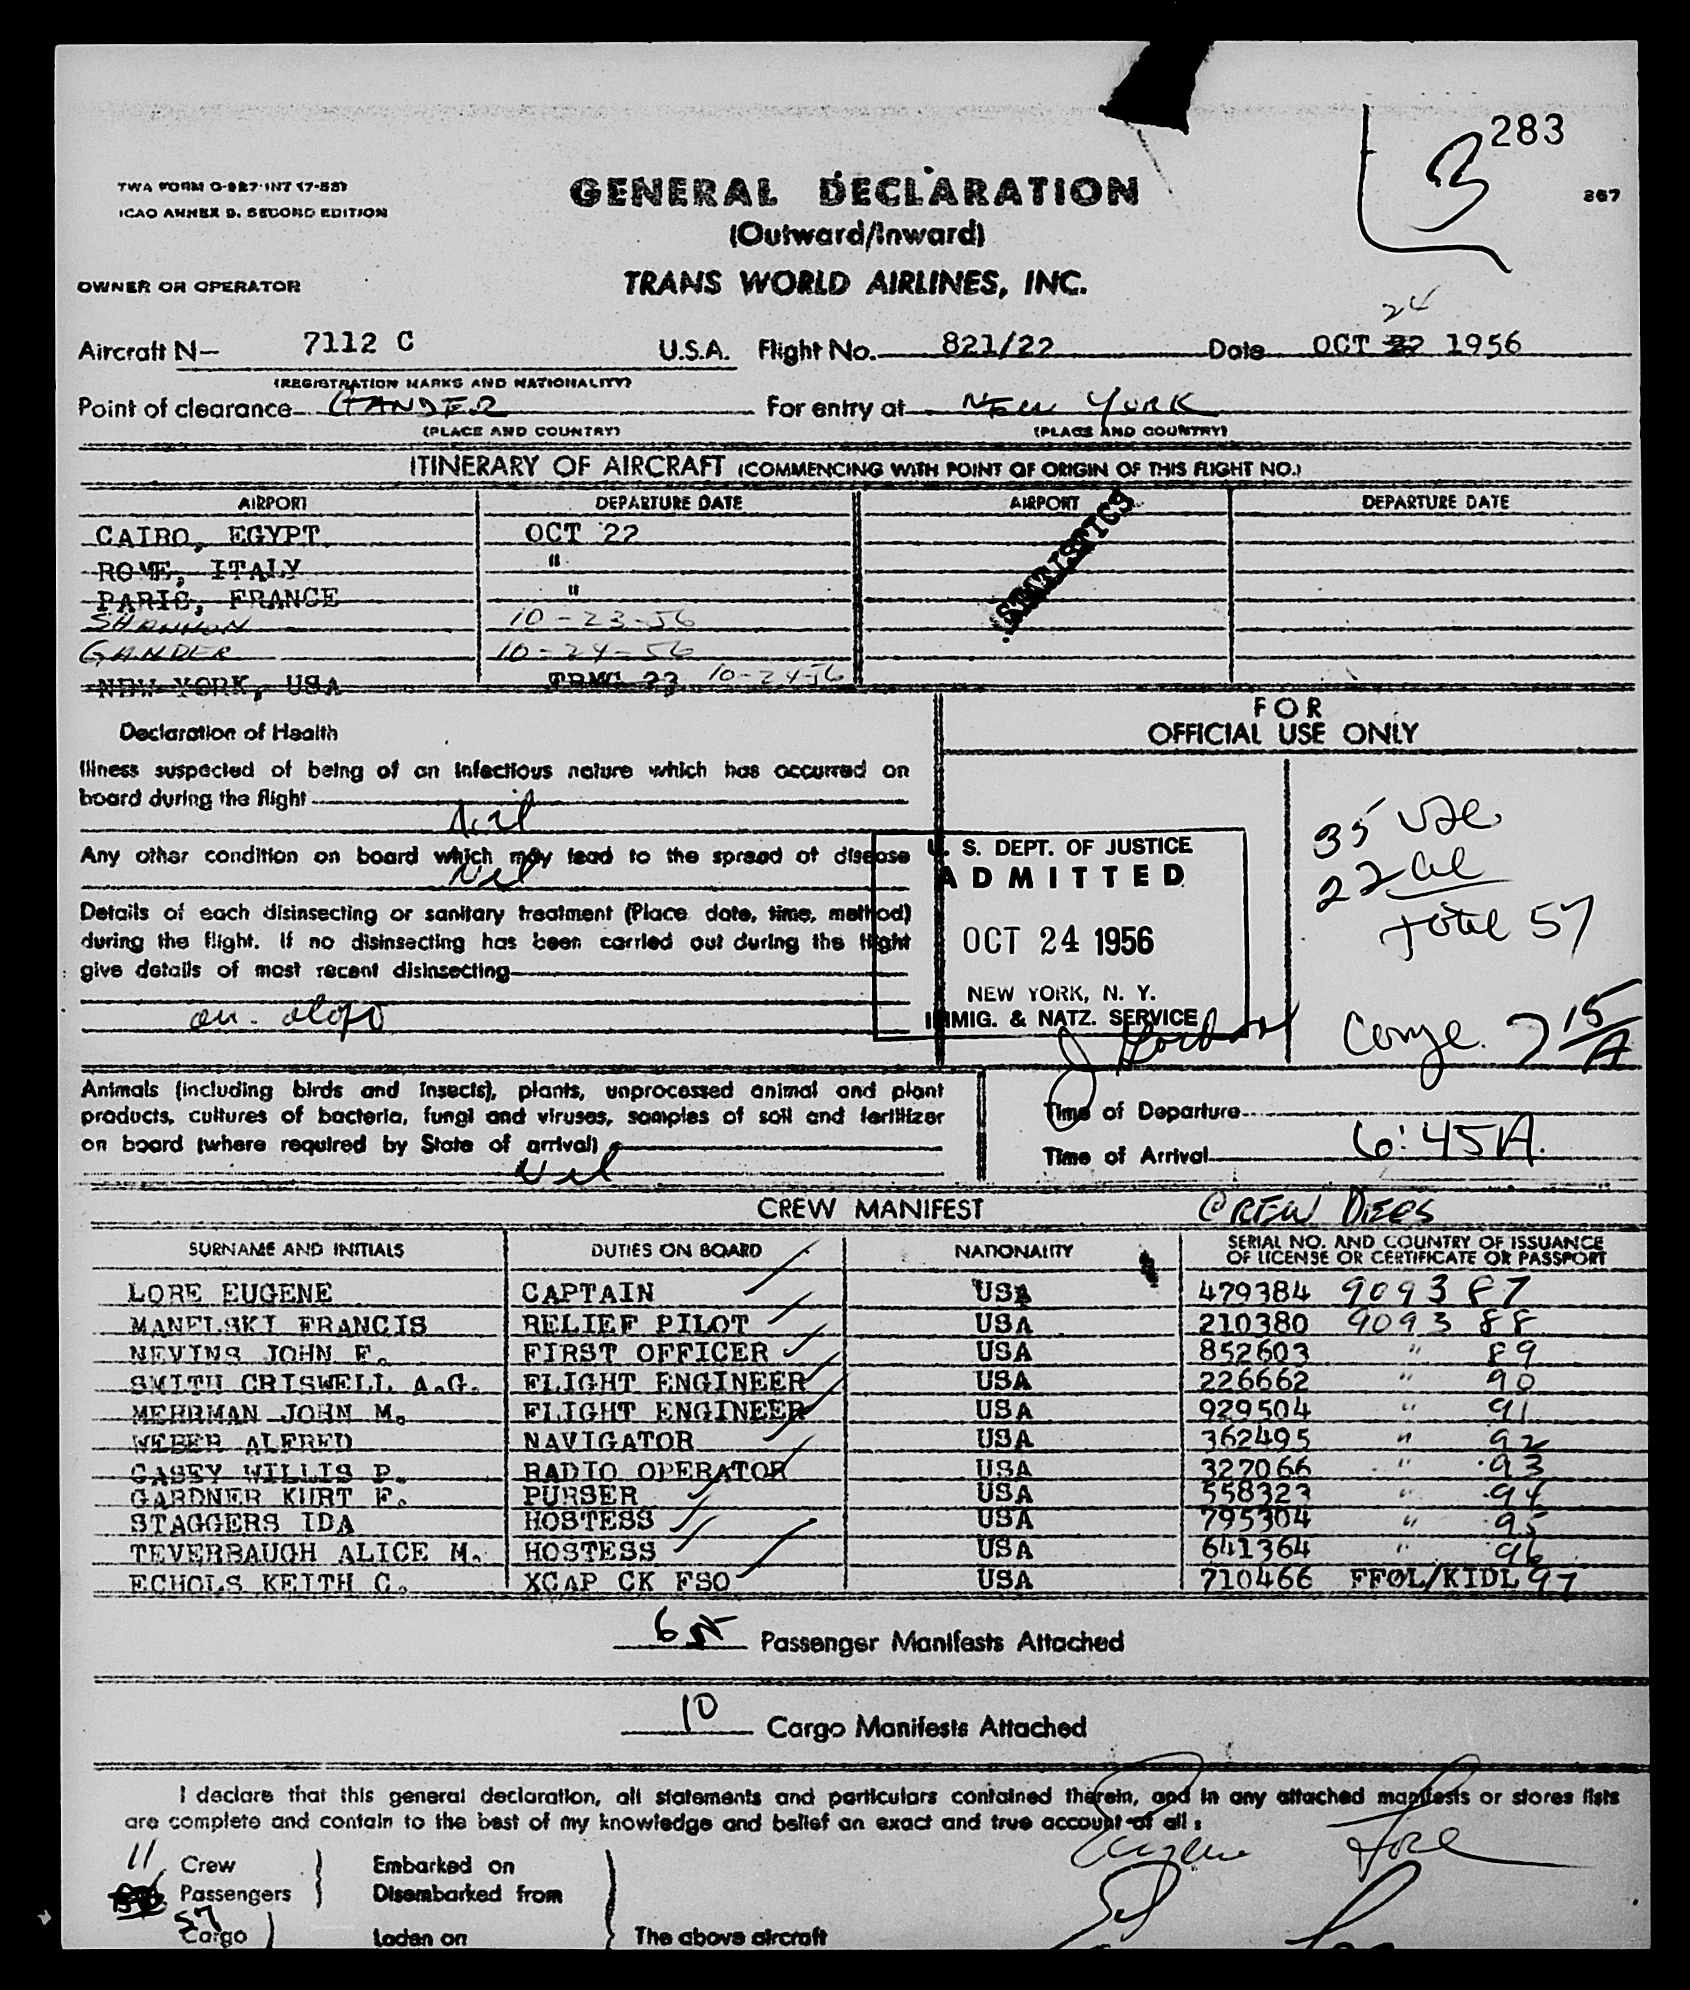 283
TWA FORM O-927-INT (7-55)
ICAO ANNEX 9, SECOND EDITION
GENERAL DECLARATION
867
(Outward/Inward)
OWNER OR OPERATOR
TRANS WORLD AIRLINES, INC.
24
Aircraft N— 7112 C U.S.A. Flight No. 821/22 Date OCT 22 1956
(REGISTRATION MARKS AND NATIONALITY)
Point of clearance GANDER For entry at NEW YORK
(PLACE AND COUNTRY) (PLACE AND COUNTRY)
ITINERARY OF AIRCRAFT (COMMENCING WITH POINT OF ORIGIN OF THIS FLIGHT NO.)
AIRPORT DEPARTURE DATE AIRPORT DEPARTURE DATE
STATISTICS
CAIRO, EGYPT OCT 22
ROME, ITALY "
PARIS, FRANCE "
SHANNON 10-23-56
GANDER 10-24-56
NEW YORK, USA TRMG 23 10-24-56
Declaration of Health
FOR
OFFICIAL USE ONLY
Illness suspected of being of an infectious nature which has occurred on
board during the flight
Nil
Any other condition on board which may lead to the spread of disease
Nil
Details of each disinsecting or sanitary treatment (Place, date, time, method)
during the flight. If no disinsecting has been carried out during the flight
give details of most recent disinsecting
U. S. DEPT. OF JUSTICE
ADMITTED
OCT 24 1956
NEW YORK, N. Y.
IMMIG. & NATZ. SERVICE
35
22
total 57
7 15/A
Animals (including birds and insects), plants, unprocessed animal and plant
products, cultures of bacteria, fungi and viruses, samples of soil and fertilizer
on board (where required by State of arrival)
Nil
Time of Departure
Time of Arrival 6:45A.
CREW MANIFEST CREW DIECS
SURNAME AND INITIALS DUTIES ON BOARD NATIONALITY SERIAL NO. AND COUNTRY OF ISSUANCE
OF LICENSE OR CERTIFICATE OR PASSPORT
LORE EUGENE CAPTAIN USA 479384 909387
MANELSKI FRANCIS RELIEF PILOT USA 210380 909388
NEVINS JOHN F. FIRST OFFICER USA 852603 " 89
SMITH CRISWELL A.G. FLIGHT ENGINEER USA 226662 " 90
MEHRMAN JOHN M. FLIGHT ENGINEER USA 929504 " 91
WEBER ALFRED NAVIGATOR USA 362495 " 92
CASEY WILLIS P. RADIO OPERATOR USA 327066 " 93
GARDNER KURT F. PURSER USA 558323 " 94
STAGGERS IDA HOSTESS USA 795304 " 95
TEVERBAUGH ALICE M. HOSTESS USA 641364 " 96
ECHOLS KEITH C. XCAP CK FSO USA 710466 FFOL/KIDL 97
6 Passenger Manifests Attached
10 Cargo Manifests Attached
I declare that this general declaration, all statements and particulars contained therein, and in any attached manifests or stores lists
are complete and contain to the best of my knowledge and belief an exact and true account of all:
Eugene Lore
11 Crew Embarked on
Passengers Disembarked from
57
Cargo Laden on The above aircraft